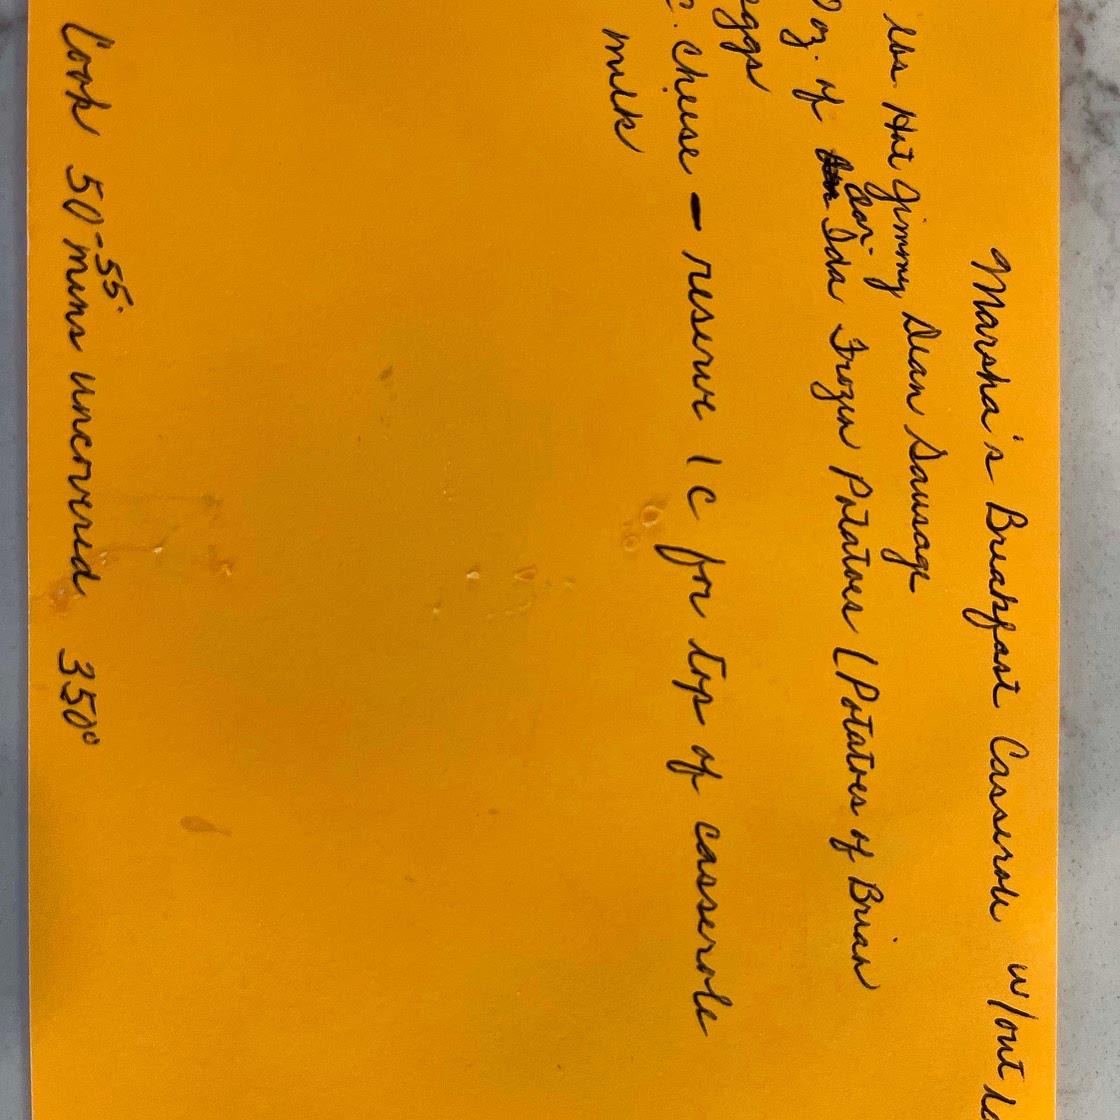 Marsha's Breakfast Casserole w/out
lbs. Hot Jimmy Dean Sausage
oz. of Ore Ida Frozen Potatoes (Potatoes of Brian
eggs
c. cheese - reserve 1 c for top of casserole
milk
Cook 50-55 mins uncovered 350°